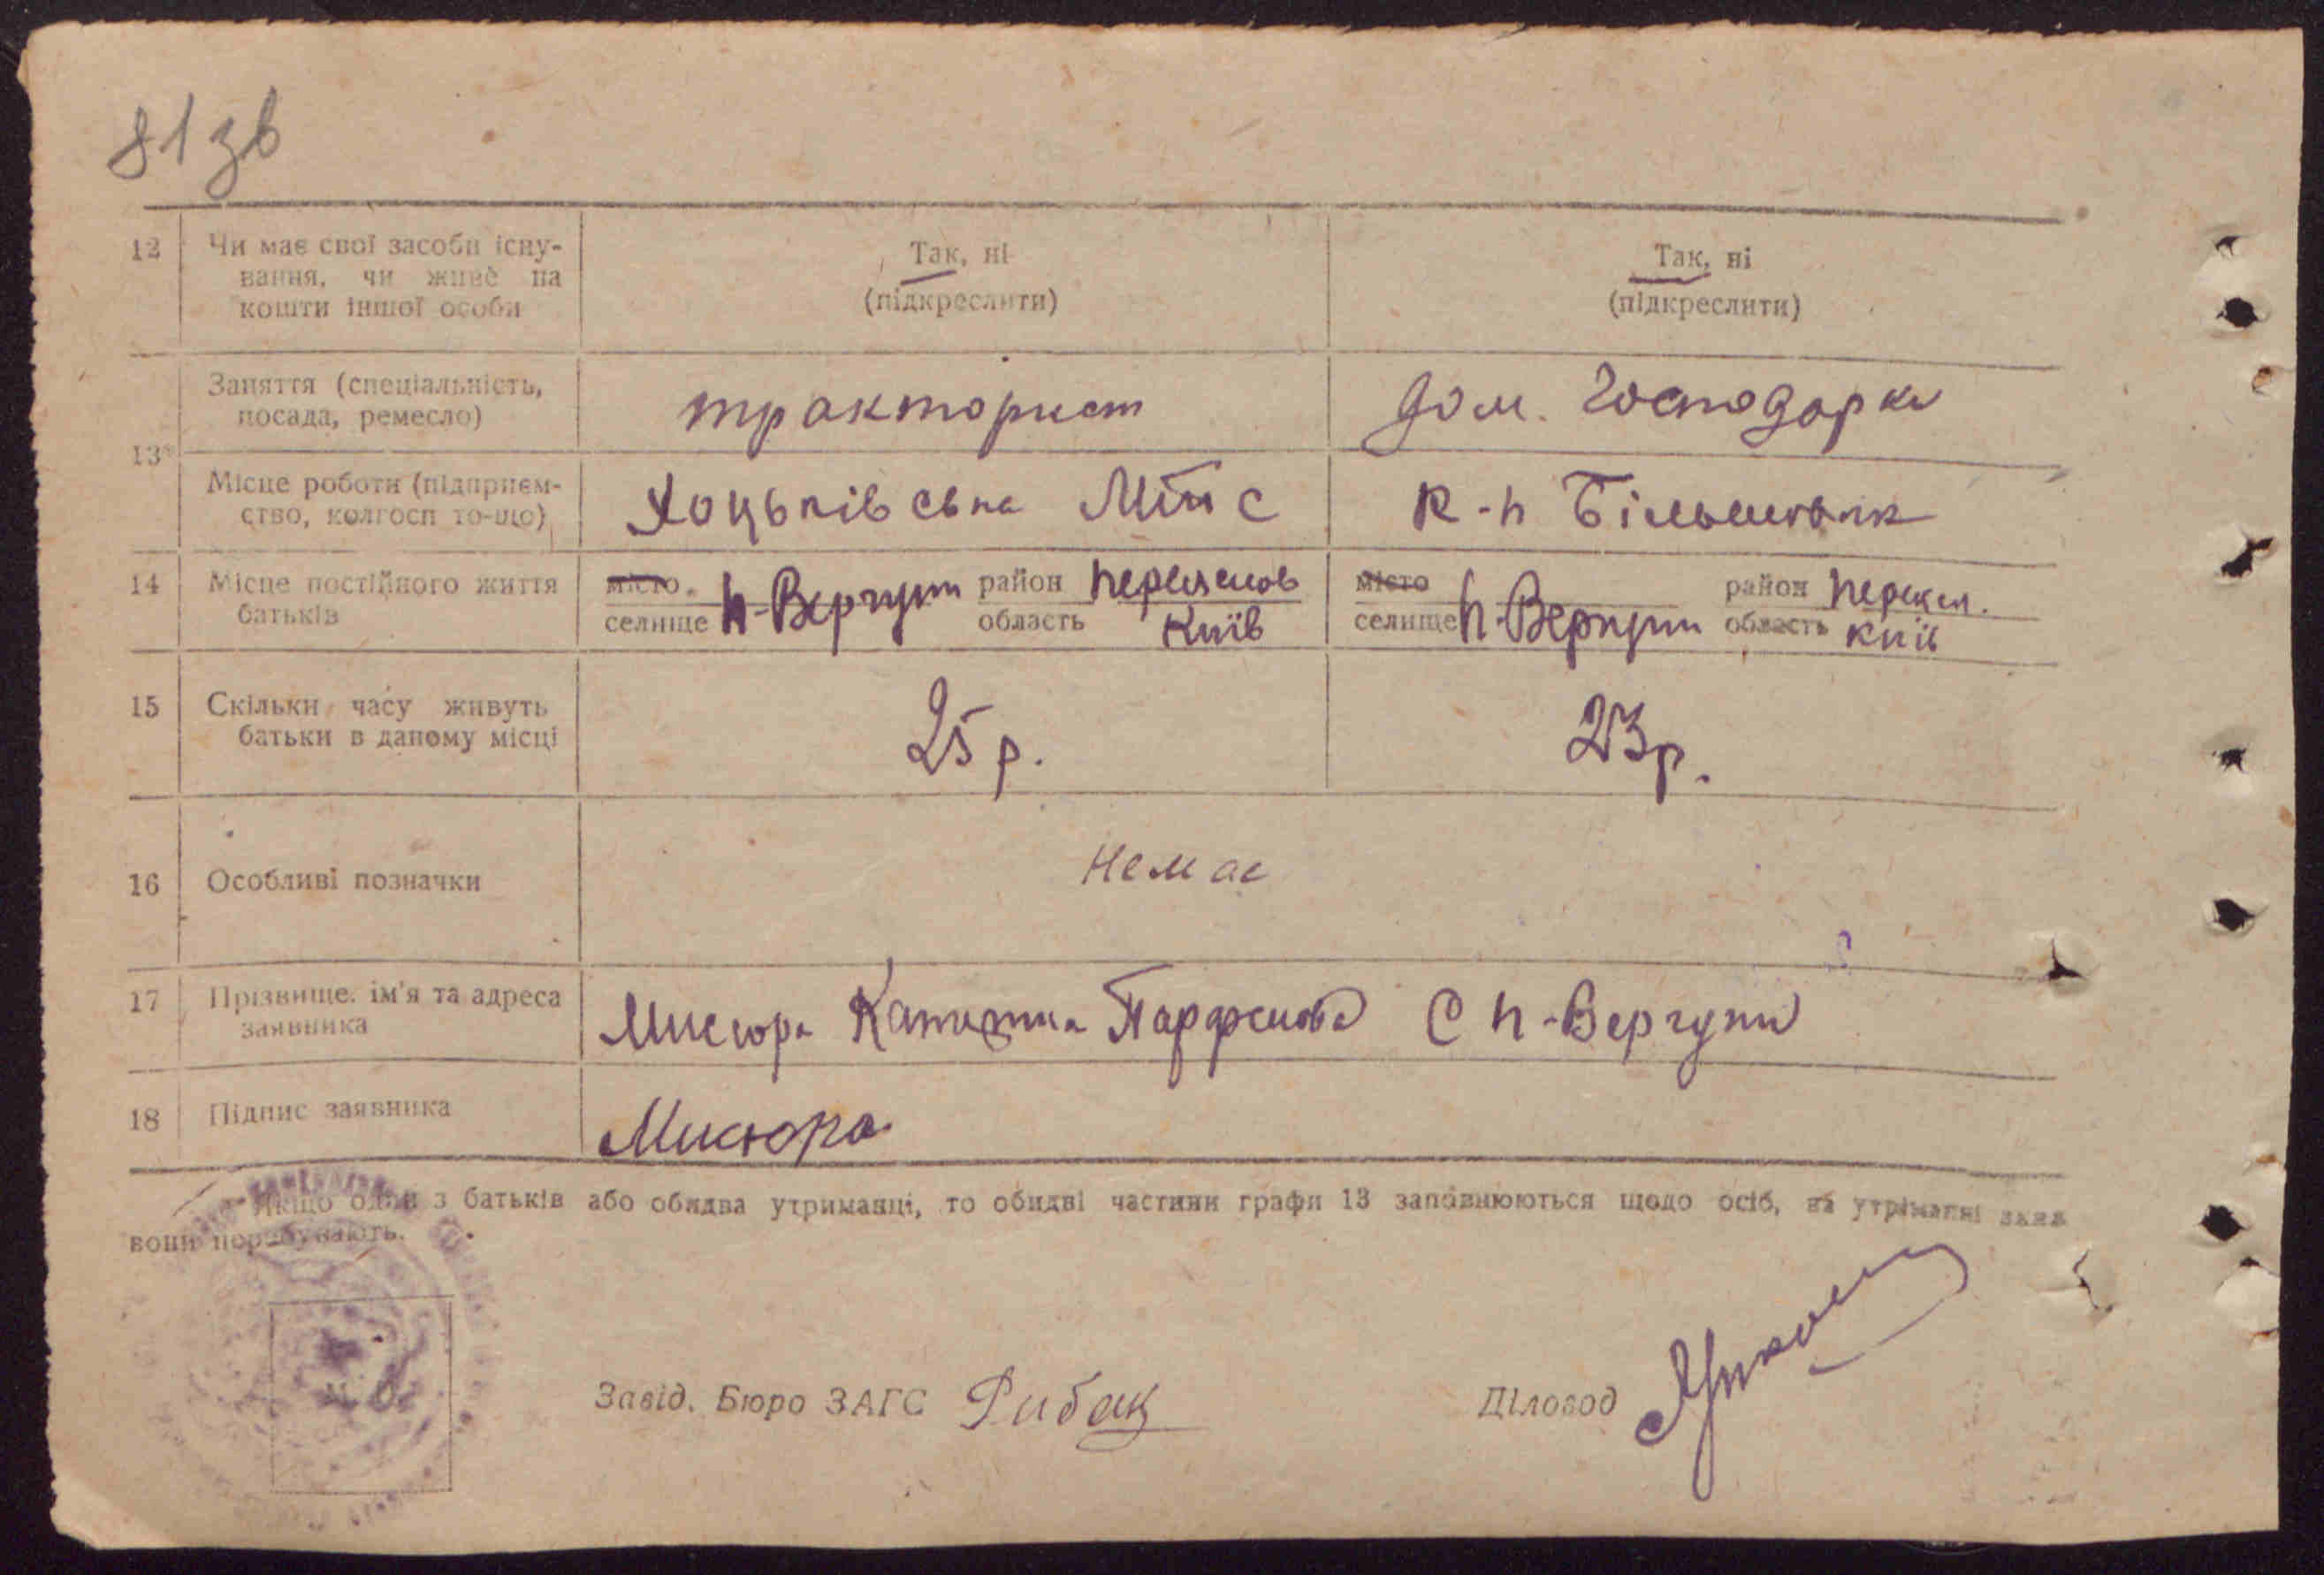 81 зв
12 Чи має свої засоби існу-
вання, чи живе на
кошти іншої особи
Так, ні
(підкреслити)
Так, ні
(підкреслити)
13*
Заняття (спеціальність,
посада, ремесло)
тракторист
дом. господарка
Місце роботи (підприєм-
ство, колгосп то-що)
Хоцьківська МТС
к-п Більшовик
14 Місце постійного життя
батьків
місто
селище п-Вергуни
район Переяслов
область Київ
місто
селище п-Вергуни
район Переясл.
область Київ
15 Скільки часу живуть
батьки в даному місці
25 р.
23 р.
16 Особливі позначки
Немає
17 Прізвище, ім'я та адреса
заявника
Мисюра Парфенова С п-Вергуни
18 Підпис заявника
Мисюра
Якщо один з батьків або обидва утриманці, то обидві частини графи 13 заповнюються щодо осіб, на утриманні яких
вони перебувають.
Завід. Бюро ЗАГС Рибак
Діловод